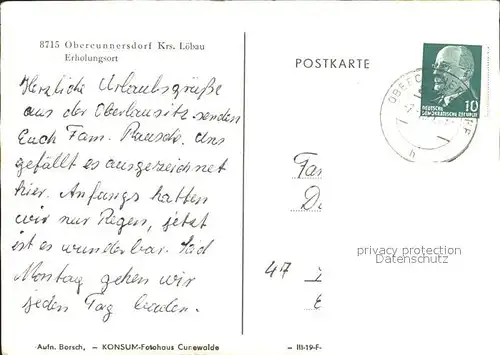 8715 Obercunnersdorf Krs. Löbau
Erholungsort
Herzliche Urlaubsgrüße
aus der Oberlausitz senden
Euch Fam. Rausch. Uns
gefällt es ausgezeichnet
hier. Anfangs hatten
wir nur Regen, jetzt
ist es wunderbar. Seid
Montag gehen wir
jeden Tag baden.
Aufn. Borsch, – KONSUM-Fotohaus Cunewalde
POSTKARTE
DEUTSCHE
DEMOKRATISCHE REPUBLIK
10
h
Fam
47
privacy protection
Datenschutz
– III-19-F-